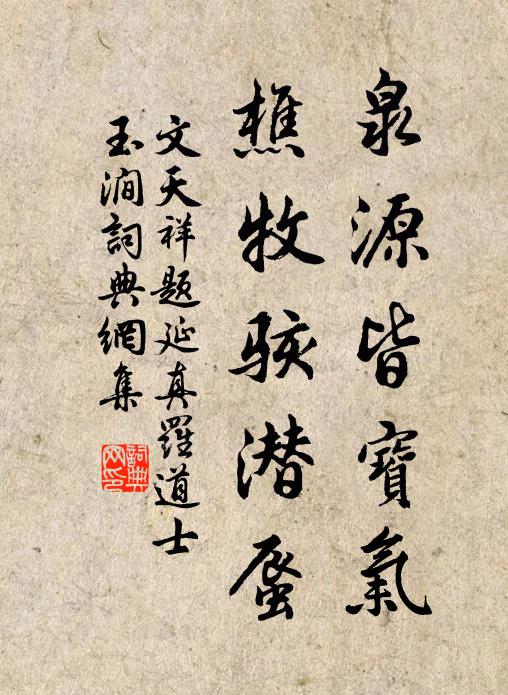 泉源皆寶氣
樵牧駭潜蜃
文天祥題延真羅道士
玉澗詞典網集
詞典网印